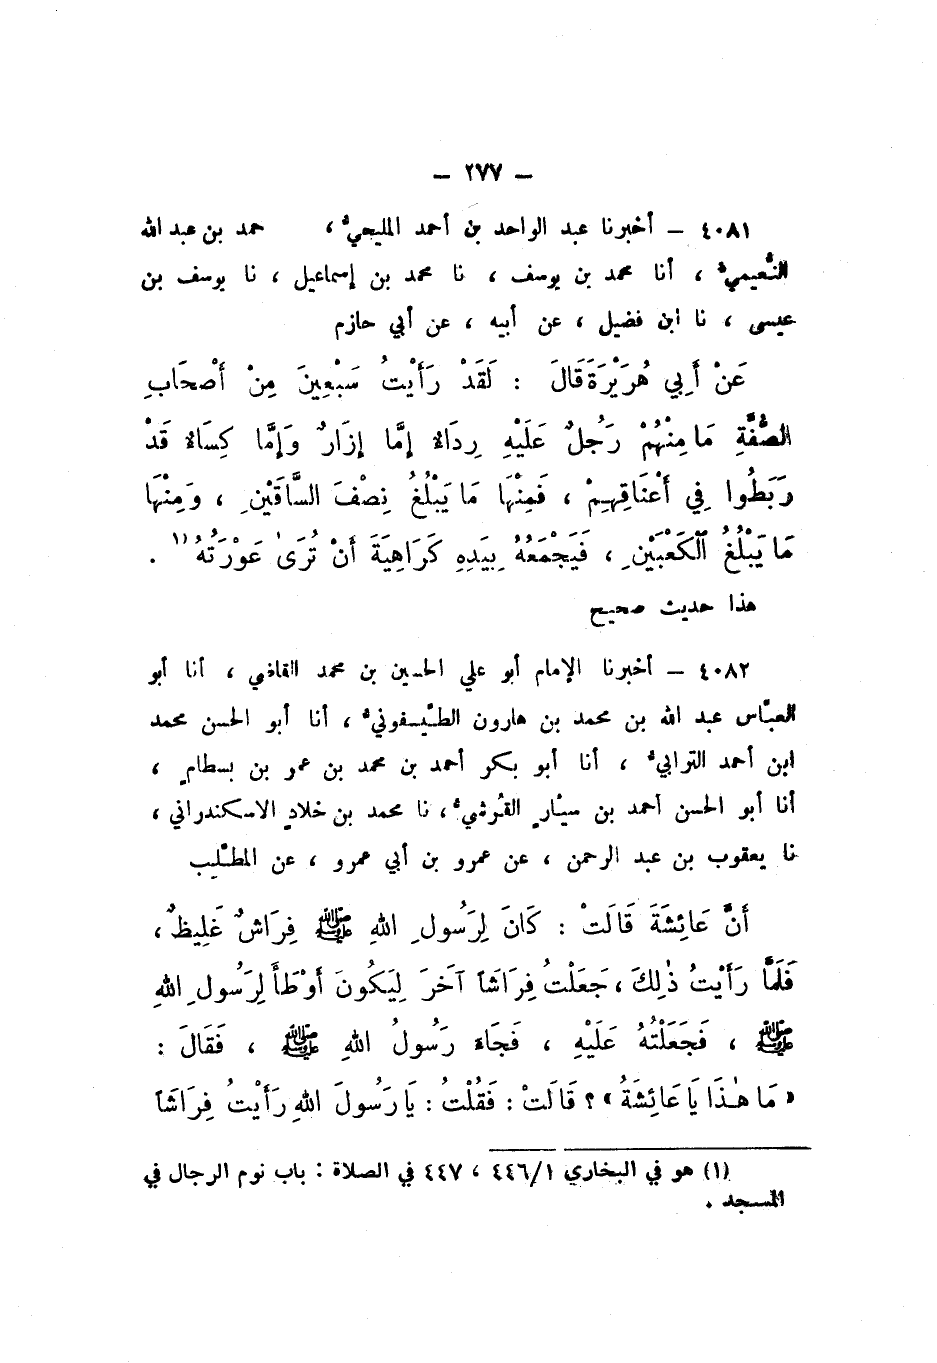 – ٢٧٧ –
٤٠٨١ – أخبرنا عبد الواحد بن أحمد المليحيُّ ، حمد بن عبد الله
النُّعيميُّ ، أنا محمد بن يوسف ، نا محمد بن إسماعيل ، نا يوسف بن
عيسى ، نا ابن فضيل ، عن أبيه ، عن أبي حازم
عَنْ أَبِي هُرَيْرَةَ قَالَ : لَقَدْ رَأَيْتُ سَبْعِينَ مِنْ أَصْحَابِ
الصُّفَّةِ مَا مِنْهُمْ رَجُلٌ عَلَيْهِ رِدَاءٌ إِمَّا إِزَارٌ وَإِمَّا كِسَاءٌ قَدْ
رَبَطُوا فِي أَعْنَاقِهِمْ ، فَمِنْهَا مَا يَبْلُغُ نِصْفَ السَّاقَيْنِ ، وَمِنْهَا
مَا يَبْلُغُ الْكَعْبَيْنِ ، فَيَجْمَعُهُ بِيَدِهِ كَرَاهِيَةَ أَنْ تُرَىٰ عَوْرَتُهُ (١) .
هذا حديث صحيح
٤٠٨٢ – أخبرنا الإمام أبو علي الحسين بن محمد القاضي ، أنا أبو
العبَّاس عبد الله بن محمد بن هارون الطَّيسفونيُّ ، أنا أبو الحسن محمد
ابن أحمد الترابيُّ ، أنا أبو بكر أحمد بن محمد بن عمر بن بسطامٍ ،
أنا أبو الحسن أحمد بن سيَّارٍ القُرشيُّ ، نا محمد بن خلادٍ الاسكندراني ،
نا يعقوب بن عبد الرحمن ، عن عمرو بن أبي عمرو ، عن المطَّلِب
أَنَّ عَائِشَةَ قَالَتْ : كَانَ لِرَسُولِ اللهِ ﷺ فِرَاشٌ غَلِيظٌ ،
فَلَمَّا رَأَيْتُ ذٰلِكَ ، جَعَلْتُ فِرَاشَاً آخَرَ لِيَكُونَ أَوْطَأَ لِرَسُولِ اللهِ
ﷺ ، فَجَعَلْتُهُ عَلَيْهِ ، فَجَاءَ رَسُولُ اللهِ ﷺ ، فَقَالَ :
« مَا هٰذَا يَا عَائِشَةُ » ؟ قَالَتْ : فَقُلْتُ : يَا رَسُولَ اللهِ رَأَيْتُ فِرَاشَاً
(١) هو في البخاري ٤٤٦/١ ، ٤٤٧ في الصلاة : باب نوم الرجال في
المسجد .